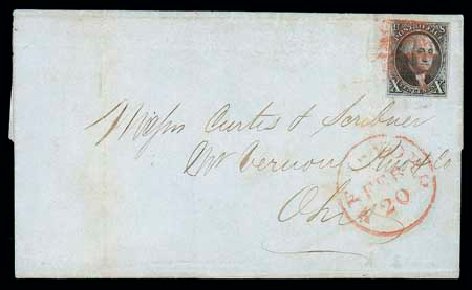 POST OFFICE
X X
Messrs Curtis & Scribner
Mt Vernon Knox Co
Ohio
20